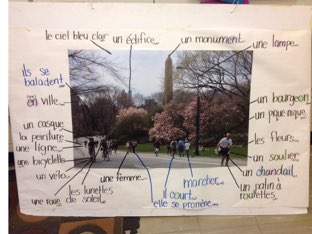 le ciel bleu clair
un édifice...
un monument...
une lampe...
ils se
baladent...
en ville...
un casque
la peinture
une ligne...
une bicyclette
un vélo...
les lunettes
de soleil...
une roue
une femme...
elle se promène...
il court...
marcher...
un bourgeon
un pique-nique
les fleurs...
un soulier
un chandail...
un patin à
roulettes